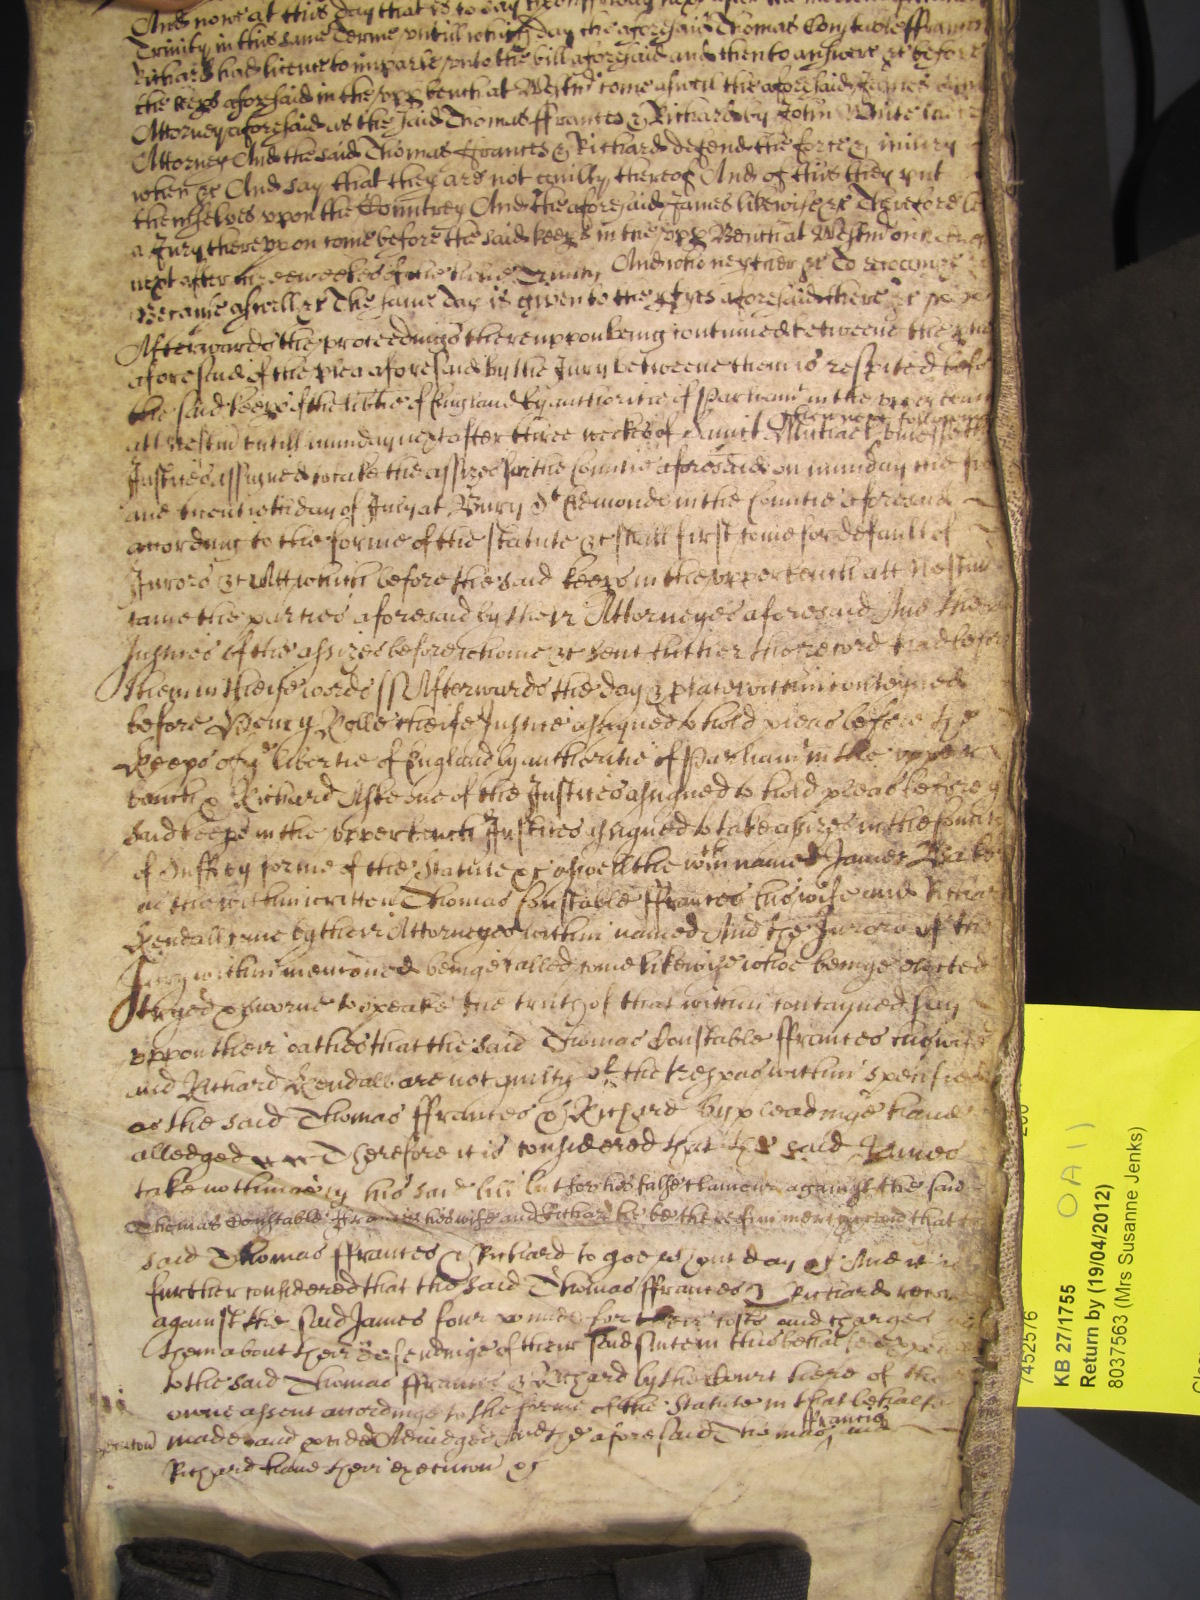 And nowe at this day that is to say uppon next after the
Trinity in this same Terme untill which day the aforesaid Thomas Constable ffrances
Richard had licence to imparle unto the bill aforesaid and then to answere &c before
the keeps aforesaid in the upp bench at Westm come aswell the aforesaid James
Attorney aforesaid as the said Thomas ffrances & Richard by John White
Attorney And the said Thomas ffrances & Richard defend the force & iniury
when &c And say that they are not guilty thereof And of this they put
themselves upon the Countrey And the aforesaid James likewise &c Therefore
a Jury thereupon come before the said keeps in the upp Bench at Westm on
next after three weekes of the holie Trinity And who neyther &c To recognize
Because aswell &c The same Day is given to the ptyes aforesaid there &c
Afterwards the proceedings thereuppon being continued betweene the
aforesaid of the plea aforesaid by the Jury betweene them is respited
the said keeps of the libtie of England by authoritie of Parliam in the upper
att Westm untill munday next after three weekes of Saint Michael then next following unlesse the
Justices assigned to take the assizes for the Countie aforesaid on munday the
and twentieth day of July at Bury St Edmonds in the Countie aforesaid
according to the forme of the statute &c shall first come for default of
Jurors &c Att which before the said keeps in the upper bench att Westm
came the parties aforesaid by their Attorneyes aforesaid And the
Justices of the assizes before whome &c sent hither their record had before
them in theise words ss Afterwards the day & place within conteyned
before Henry Rolle cheife Justice assigned to hold pleas before the
Keeps of ye libertie of England by authoritie of Parliam in the upper
bench & Richard Aske one of the Justices assigned to hold pleas before ye
said keeps in the upper bench Justices assigned to take assizes in the Countie
of Suff by forme of the Statute &c aswell the wthin named James
as the within written Thomas Constable ffrances his wife and Richard
Kendall came by their Attorneyes within named And the Jurors of the
Jury within mentioned beinge called come likewise whoe beinge elected
tryed & sworne to speake the truth of that within contayned say
uppon their oathes that the said Thomas Constable ffrances his wife
and Richard Kendall are not guilty of the trespas within specified
as the said Thomas ffrances & Richard by pleadinge have
alledged Therefore it is considered that the said James
take nothinge by his said bill but for his false clamour against the said
Thomas Constable ffrances his wife and Richard he be therefore in mercy and that the
said Thomas ffrances & Richard to goe wthout day &c And it is
further considered that the said Thomas ffrances & Richard recover
against the said James four pounds for their costs and charges
them about their defendinge of their said suite in this behalfe
to the said Thomas ffrances & Richard by the Court here of their
owne assent accordinge to the forme of the Statute in that behalfe
made and pvided Adiudged And the aforesaid Thomas ffrances and
Richard have their execucon &c
execucon
7452576
KB 27/1755
Return by (19/04/2012)
8037563 (Mrs Susanne Jenks)
OA 1)